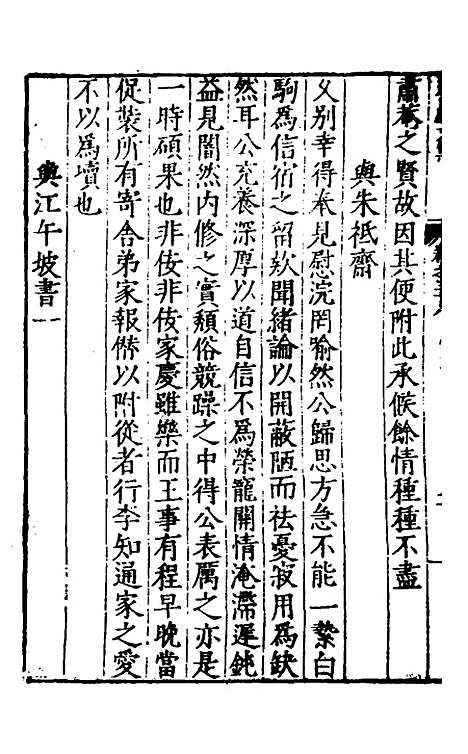 肅菴之賢故因其便附此承候餘情種種不盡
與朱祗齋
乆别幸得奉見慰浣罔喻然公歸思方急不能一縶白
駒爲信宿之留欵聞緒論以開蔽陋而祛憂寂用爲缺
然耳公充養深厚以道自信不爲榮寵關情淹滯遲鈍
益見闇然内修之實頽俗競躁之中得公表厲之亦是
一時碩果也非佞非佞家慶雖樂而王事有程早晚當
促裝所有寄舍弟家報僣以附從者行李知通家之愛
不以爲瀆也
與江午坡書一